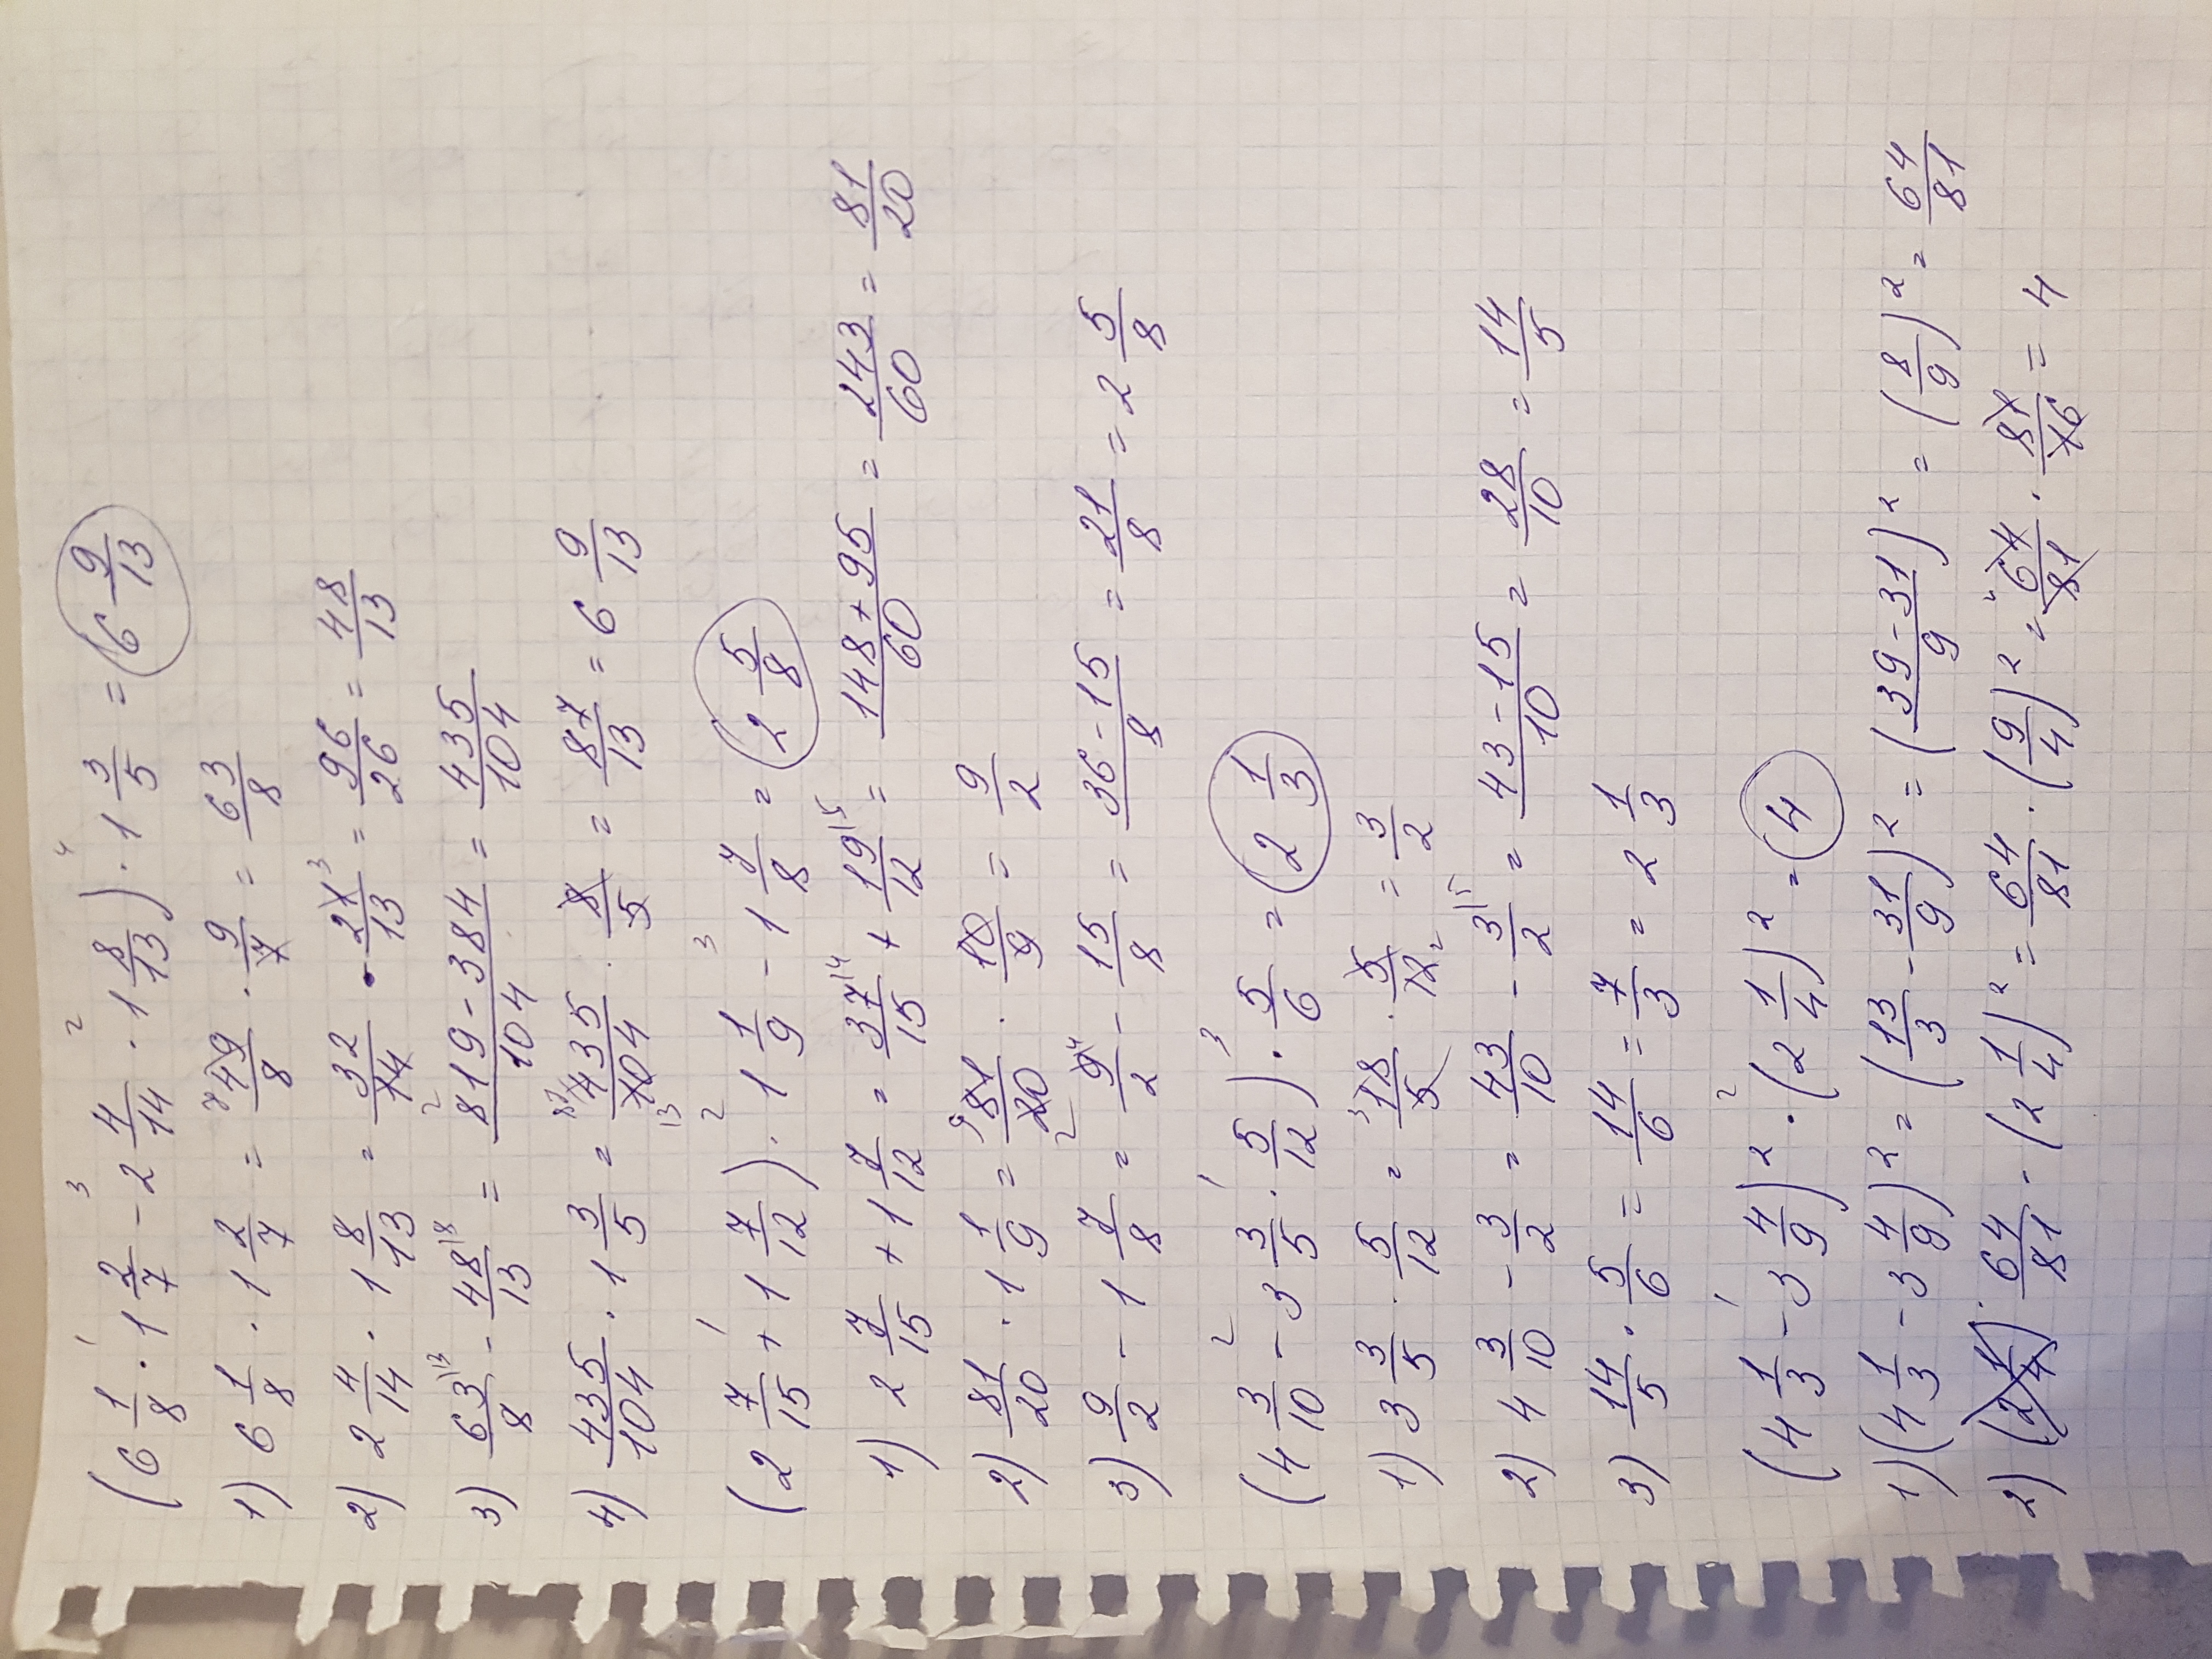 (6 1/8 · 1 2/7 - 2 4/14 · 1 8/13) · 1 3/5 = 6 9/13
1) 6 1/8 · 1 2/7 = 49/8 · 9/7 = 63/8
2) 2 4/14 · 1 8/13 = 32/14 · 21/13 = 96/26 = 48/13
3) 63/8 - 48/13 = 819-384/104 = 435/104
4) 435/104 · 1 3/5 = 435/104 · 8/5 = 87/13 = 6 9/13
(2 7/15 + 1 7/12) · 1 1/9 - 1 7/8 = 2 5/8
1) 2 7/15 + 1 7/12 = 37/15 + 19/12 = 148+95/60 = 243/60 = 81/20
2) 81/20 · 1 1/9 = 81/20 · 10/9 = 9/2
3) 9/2 - 1 7/8 = 9/2 - 15/8 = 36-15/8 = 21/8 = 2 5/8
(4 3/10 - 3 3/5 · 5/12) · 5/6 = 2 1/3
1) 3 3/5 · 5/12 = 18/5 · 5/12 = 3/2
2) 4 3/10 - 3/2 = 43/10 - 3/2 = 43-15/10 = 28/10 = 14/5
3) 14/5 · 5/6 = 14/6 = 7/3 = 2 1/3
(4 1/3 - 3 4/9)² · (2 1/4)² = 4
1) (4 1/3 - 3 4/9)² = (13/3 - 31/9)² = (39-31/9)² = (8/9)² = 64/81
2) 64/81 · (2 1/4)² = 64/81 · (9/4)² = 64/81 · 81/16 = 4